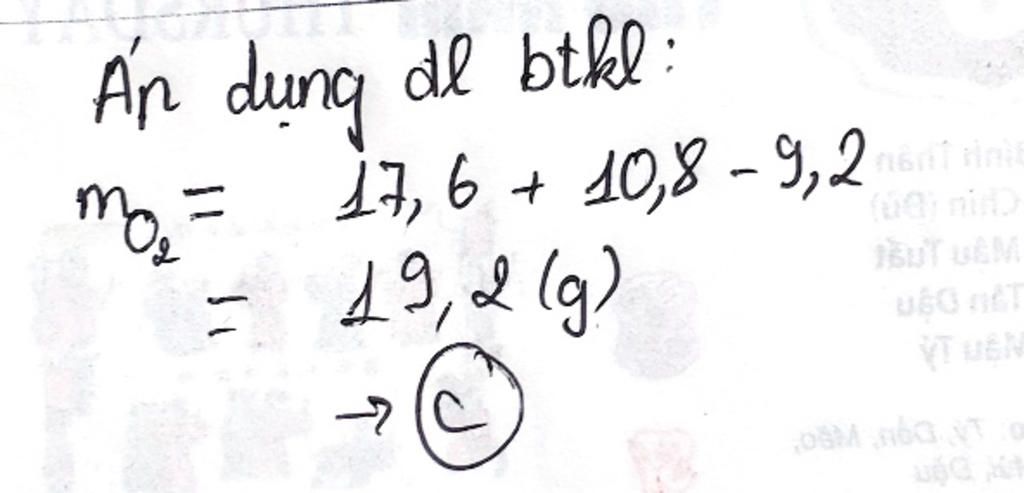 Áp dụng đl btkl:
mO₂ = 17,6 + 10,8 - 9,2
= 19,2 (g)
→ C